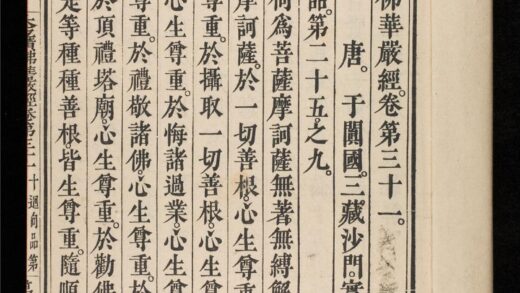 佛華嚴經。卷第三十一。
唐。于闐國。三藏沙門。實
品。第二十五之九。
何為菩薩摩訶薩無著無縛解
摩訶薩。於一切善根。心生尊重
尊重。於攝取一切善根。心生
心生尊重。於悔諸過業。心生
尊重。於禮敬諸佛。心生尊重
於頂禮塔廟。心生尊重。於勸佛
是等種種善根。皆生尊重。隨順
廣佛華嚴經卷第三十一 十迴向品第